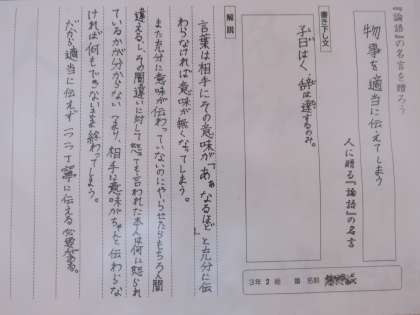 『論語』の名言を贈ろう
物事を適当に伝えてしまう
人に贈る『論語』の名言
書き下し文
子曰はく、辞は達するのみ。
解説
言葉は相手にその意味が「あぁなるほど」と充分に伝
わらなければ意味が無くなってしまう。
また充分に意味が伝わっていないのにやらせたらもちろん間
違えるし、その間違いに対して怒っても言われた本人は何に怒られ
ているかが分からない つまり、相手に意味がちゃんと伝わらな
ければ何もできないまま終わってしまう。
だから適当に伝えず一つ一つ丁寧に伝える必要がある。
3年 2 組 番 名前